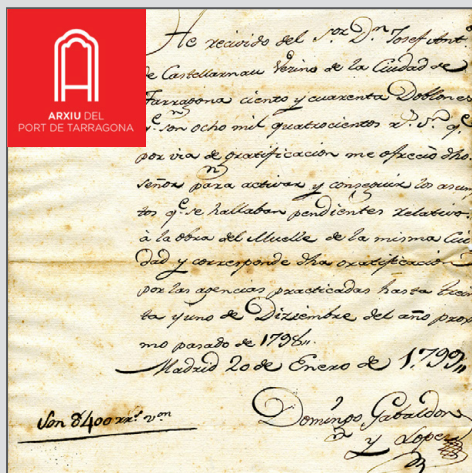 ARXIU DEL
PORT DE TARRAGONA
He recivido del Sor. Dn. Josef Antº
de Castellarnau Vezino de la Ciudad de
Tarragona ciento y cuarenta Doblones
qe. son ocho mil quatrocientos rs. vn. qe
por via de gratificacion me ofreció dho
señor para activar y conseguir los asun
tos qe. se hallaban pendientes relativos
à la obra del Muelle de la misma Ciu
dad y corresponde dha gratificacion
por las agencias practicadas hasta trein
ta y uno de Diziembre del año proxi
mo pasado de 1798,,
Madrid 20 de Enero de 1799,,
Domingo Gabaldon
y Lopez
Son 8400 rrs. von